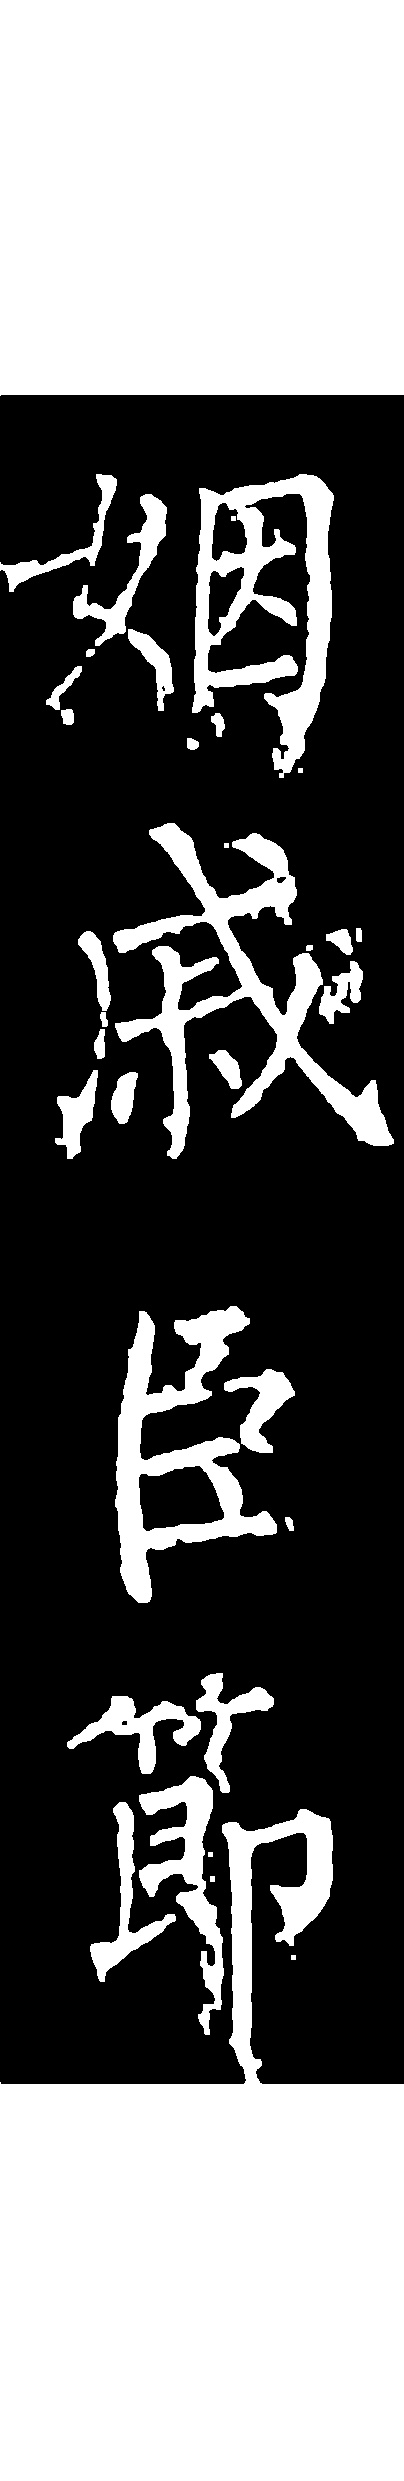 姻戚臣節